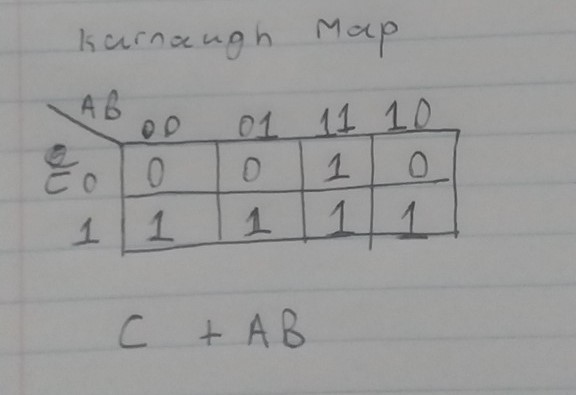 Karnaugh Map
AB 00 01 11 10
C 0 0 0 1 0
1 1 1 1 1
C + AB